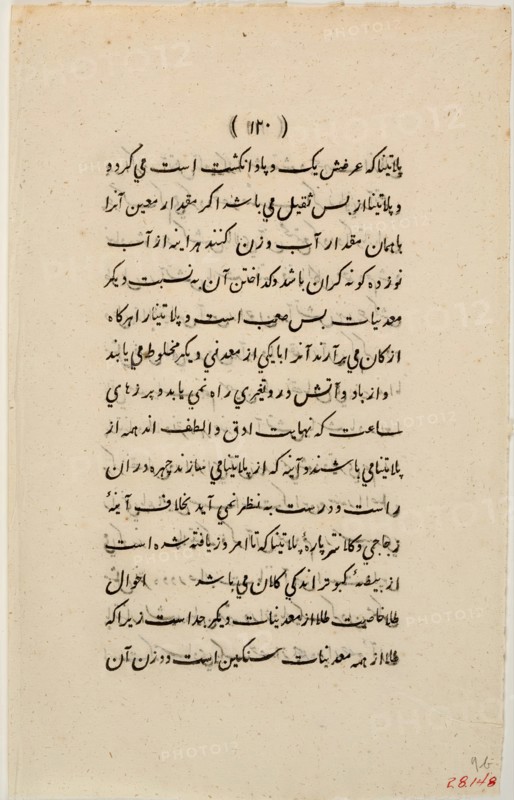 ( ۱۲۰ )
پلاتیناکه عرضش یک و پاد انکشت است می کردو
و پلاتینااز بس ثقیل می باشد اکر مقدار معین آنرا
باهمان مقدار آب وزن کنند هراینه از آب
نوزده کونه کران باشد وکداختن آن به نسبت دیکر
معدنیات بس صعب است و پلاتینارا هرکاه
از کان می برآرند آنرا بایکی از معدنی دیکر مخلوط می یابند
و از باد و آتش درو تغیری راه نمی یابد و پرزهای
ساعت که نهایت ادق والطف اند همه از
پلاتینامی باشند و آینه که از پلاتینامی سازند چهره در ان
راست و درست به نظر نمی آید بخلاف آینهٔ
زجاجی وکلانتر پارهٔ پلاتیناکه تا امروز یافته شده است
از بیضهٔ کبوتر اندکی کلان می باشد احوال
طلا خاصیت طلا از معدنیات دیکر جداست زیراکه
طلا از همه معدنیات سنکین است ووزن آن
96
28.148
PHOTO12